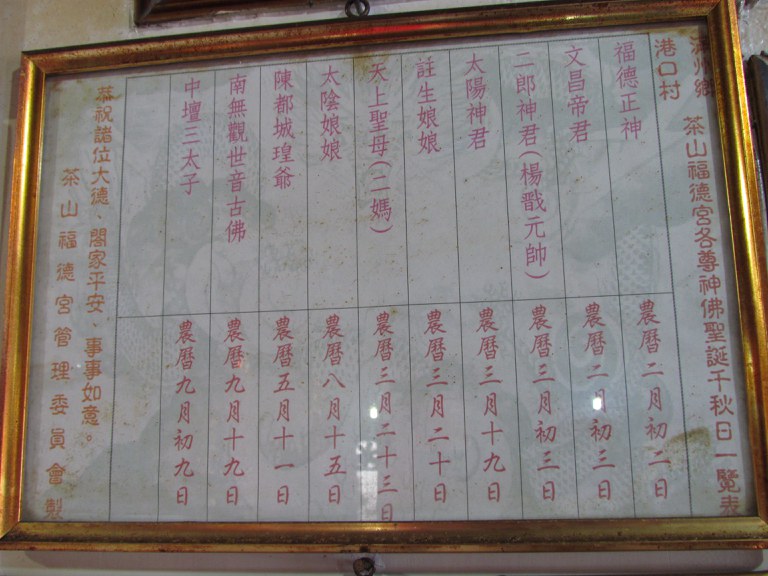 滿州鄉
港口村
茶山福德宮各尊神佛聖誕千秋日一覽表
福德正神 農曆二月初二日
文昌帝君 農曆二月初三日
二郎神君(楊戩元帥) 農曆三月初三日
太陽神君 農曆三月十九日
註生娘娘 農曆三月二十日
天上聖母(二媽) 農曆三月二十三日
太陰娘娘 農曆八月十五日
陳都城瑝爺 農曆五月十一日
南無觀世音古佛 農曆九月十九日
中壇三太子 農曆九月初九日
恭祝諸位大德、閤家平安、事事如意。
茶山福德宮管理委員會製